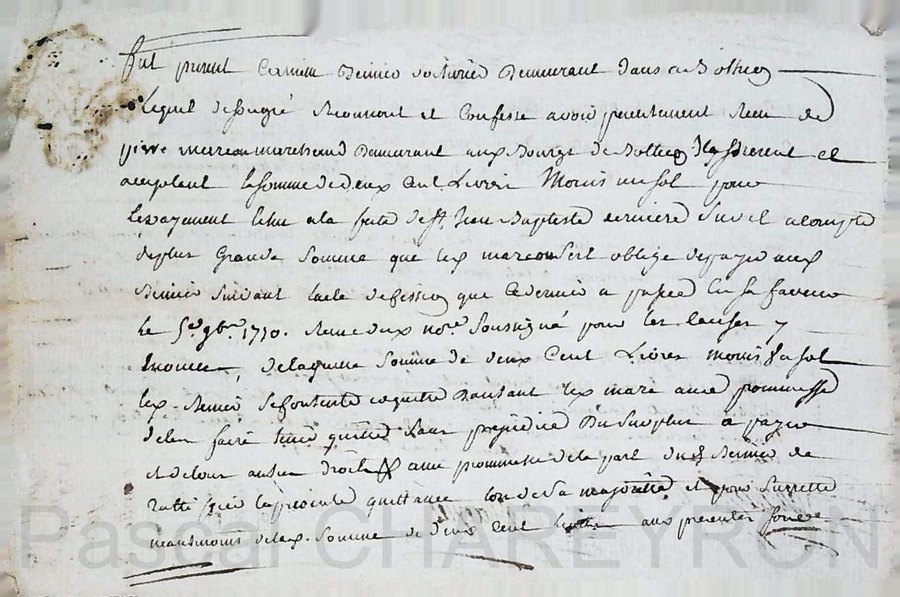 fut present Camille Bernier voiturier Demeurant dans ce Bothieg
Lequel de son gré Reconnoit et Confesse avoir presentement Receu de
pierre marcou marchand Demeurant aux Bourg de Bothieg Il present et
acceptant la somme de deux Cent Livres Moins un sol pour
Le payement Echu a la fete de St. Jean Baptiste derniere Sur et a compte
de plus Grande Somme que led marcou s'est obligé de payer aud
Bernier Suivant l'acte de Cession que Ce dernier a passé En sa faveur
Le 5e. 9bre. 1770. Receu dud nore. Soussigné pour les Causes y
Enoncées, de laquelle Somme de deux Cent Livres moins un sol
led Bernier Se Contente et quitte led marcou avec promesse
de l'en faire tenir quitte Sans prejudice Du Surplus a payer
et de tout autres droits avec promesse de la part dud Bernier de
Ratiffier la presente quittance lors de sa majorité et pour Surrette
neantmoins de lad. Somme de deux Cent aux presentes
Pascal CHAREYRON